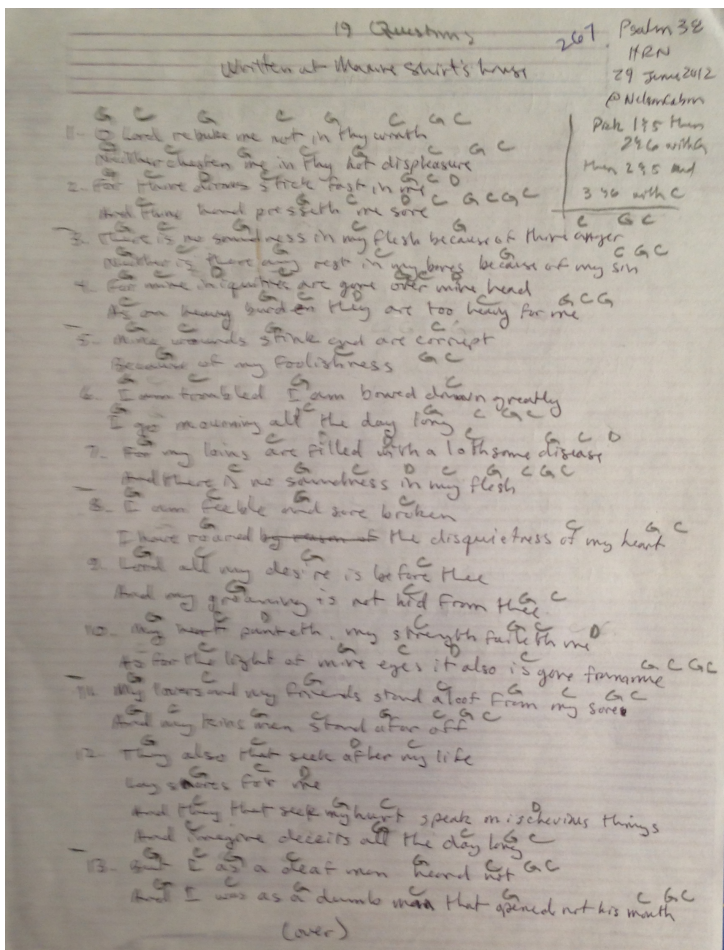 19 Questions
267.
Psalm 38
HRN
29 June 2012
@NelsonCabrn
Written at Maxine Shirt's house
Pick 1 & 5 then
2 & 6 with G
then 2 & 5 and
3 & 6 with C
G C G C G C G C
1- O Lord rebuke me not in thy wrath
G C G C
Neither chasten me in thy hot displeasure
G C D G C D
2- For thine arrows stick fast in me
C G C D C G C G C
And thine hand presseth me sore
G C G C G C G C
3- There is no soundness in my flesh because of thine anger
G C G C G C G C
Neither is there any rest in my bones because of my sin
G C D G C D
4- For mine iniquities are gone over mine head
C G C D C G C G
As an heavy burden they are too heavy for me
G C G C
5- mine wounds stink and are corrupt
G C G C
Because of my foolishness
G C G C
6- I am troubled I am bowed down greatly
G C G C G C
I go mourning all the day long
G C D C G C D
7- For my loins are filled with a lothsome disease
C G C D C G C G C
And there is no soundness in my flesh
G C G C
8- I am feeble and sore broken
G C G C
I have roared by reason of the disquietness of my heart
G C G C
9- Lord all my desire is before thee
G C G C
And my groaning is not hid from thee
G C D C G C D
10- My heart panteth, my strength faileth me
G C D C G C G C
As for the light of mine eyes it also is gone from me
G C G C G C G C
11- My lovers and my friends stand aloof from my sore
G C G C G C
And my kinsmen stand afar off
G C D C
12- They also that seek after my life
G C D
Lay snares for me
C G C D
And they that seek my hurt speak mischevious things
C G G C
And imagine deceits all the day long
G C G C G C G C
13- But I as a deaf man heard not
G C G C G C G C
And I was as a dumb man that opened not his mouth
(over)